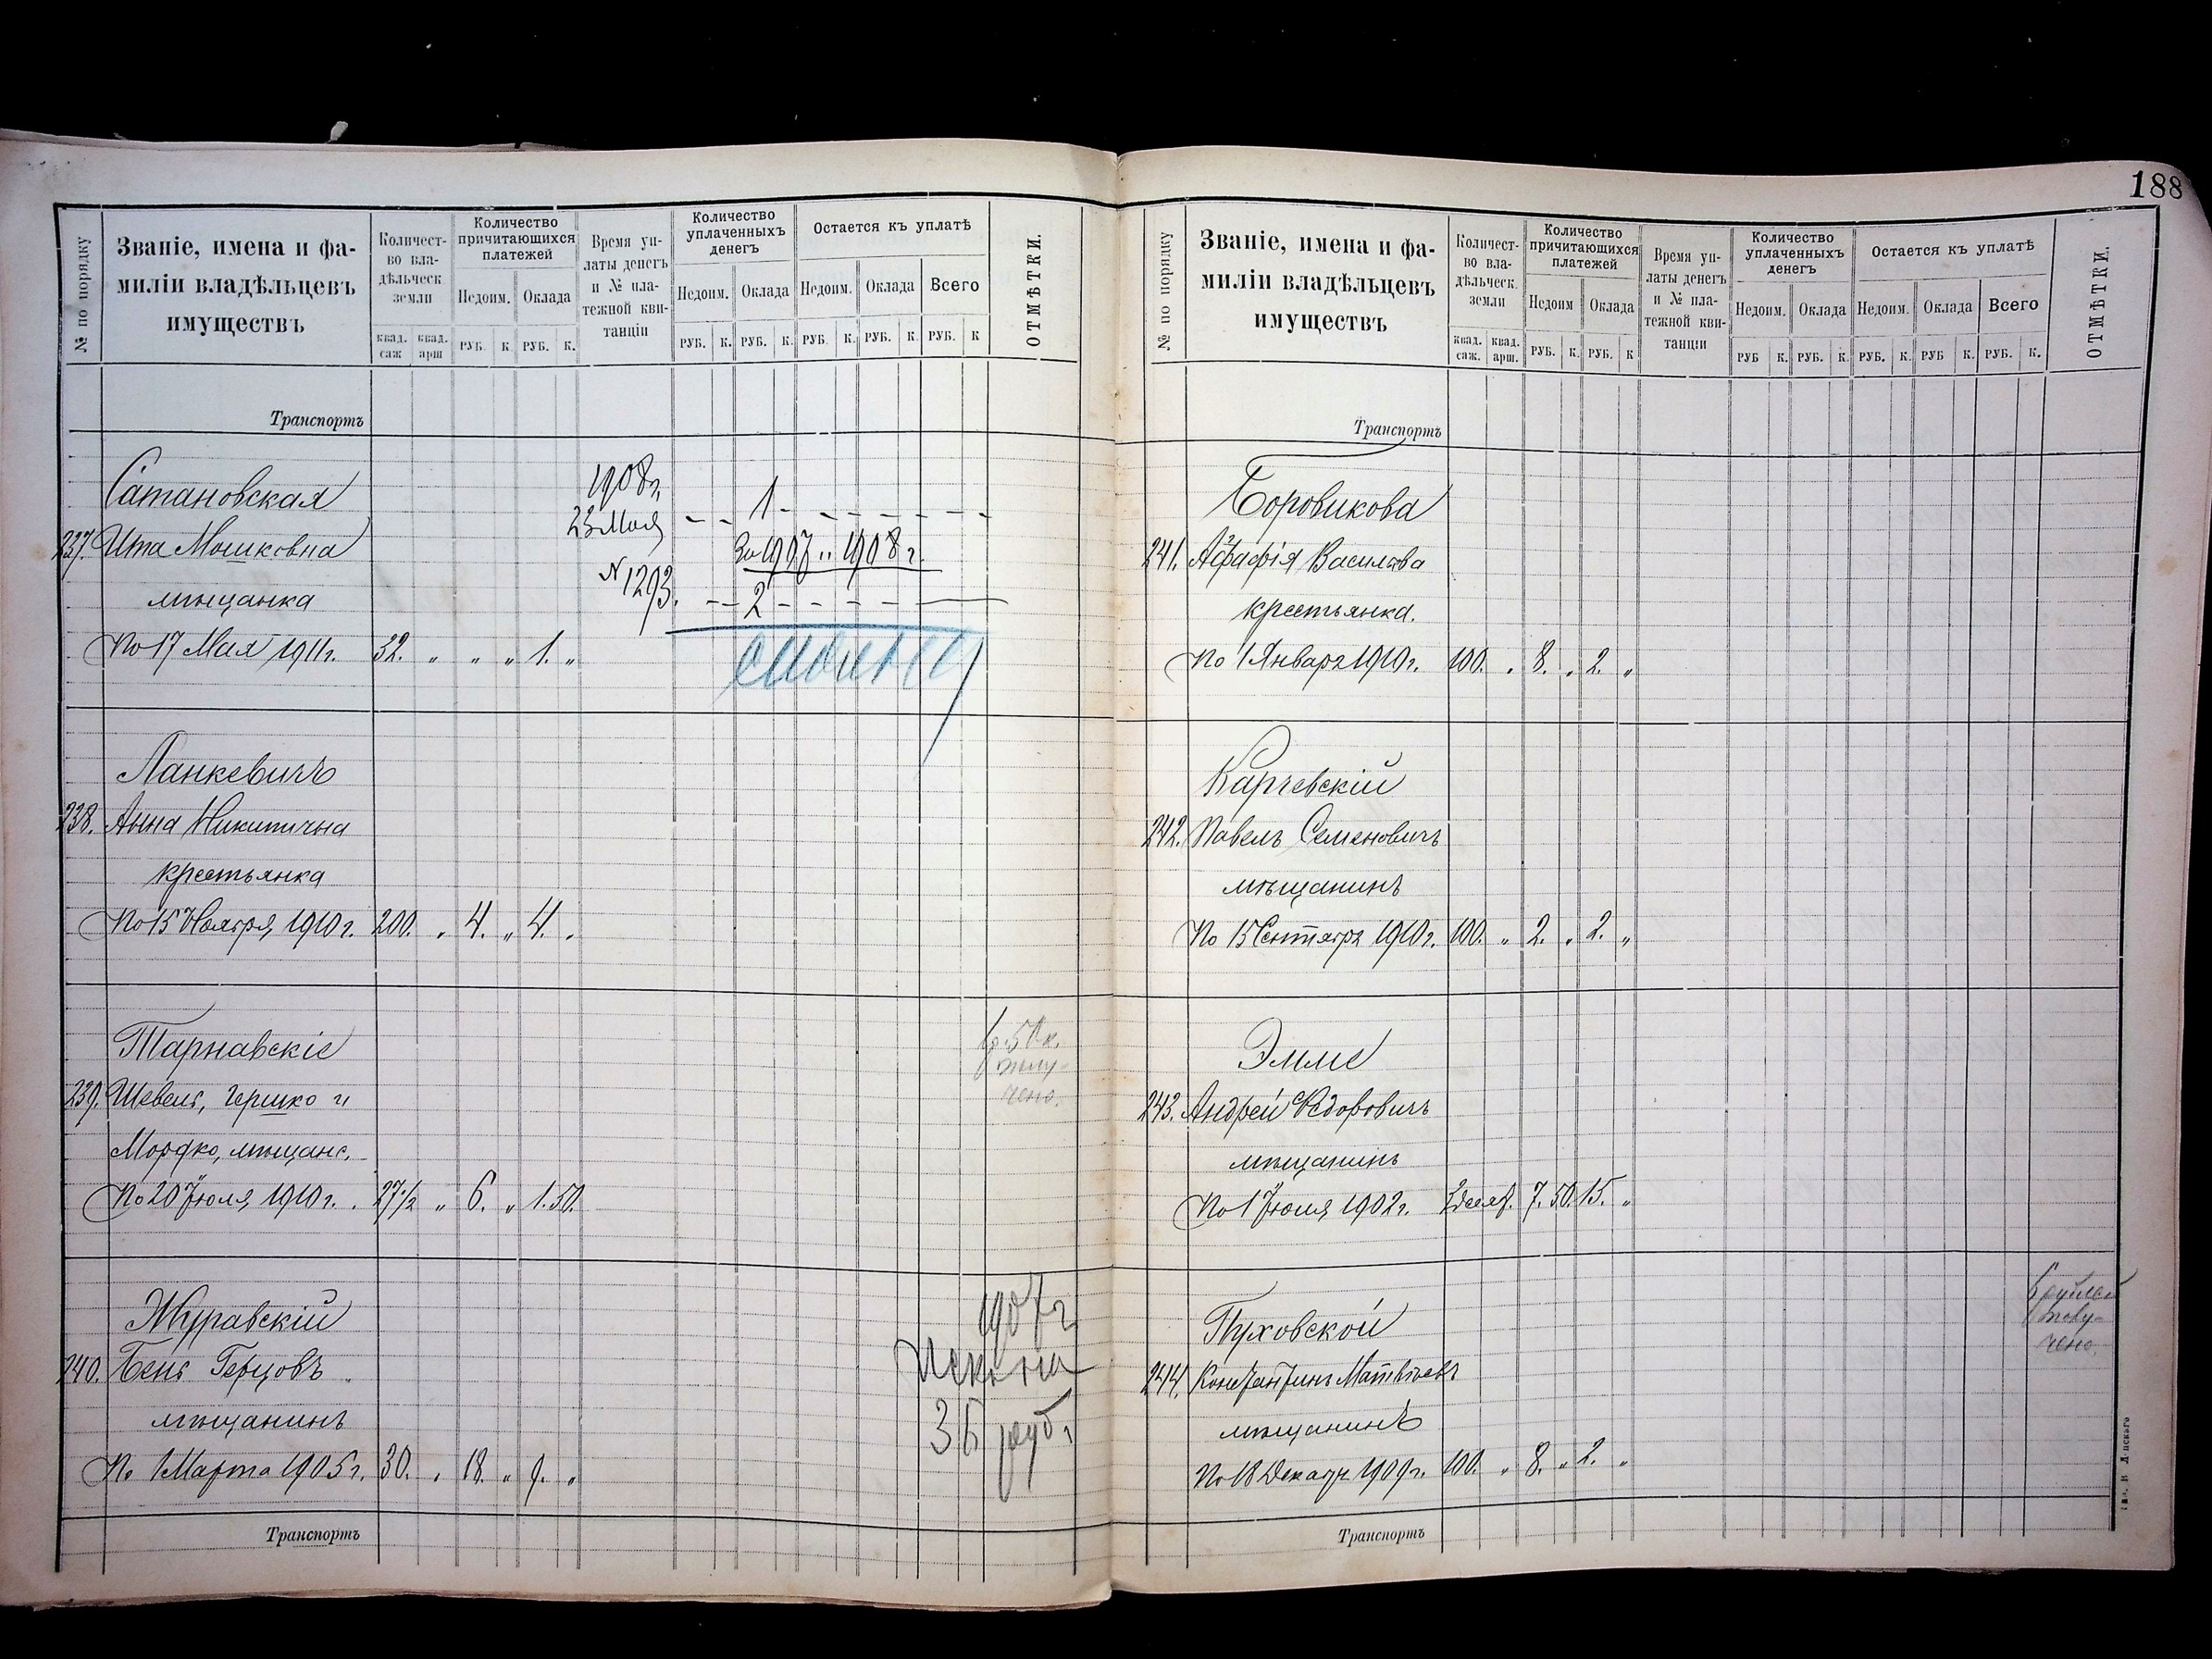 188
№ по порядку
Званіе, имена и фа-
миліи владѣльцевъ
имуществъ
Количест-
во вла-
дѣльческ.
земли
квад. саж. квад. арш
Количество
причитающихся
платежей
Недоим. Оклада
РУБ. К. РУБ. К.
Время уп-
латы денегъ
и № пла-
тежной кви-
танціи
Количество
уплаченныхъ
денегъ
Недоим. Оклада
РУБ. К. РУБ. К.
Остается къ уплатѣ
Недоим. Оклада Всего
РУБ. К. РУБ. К. РУБ. К
ОТМѢТКИ.
Транспортъ
Сатановская
237. Ита Мошковна
мѣщанка
По 17 Мая 1911 г. 32. „ „ „ 1. „
1908 г.
23 Мая
N 1293.
1
За 1907 и 1908 г.
2
Ланкевичъ
238. Анна Никитична
крестьянка
По 15 Ноября 1910 г. 200. „ 4. „ 4. „
Тарнавскіе
239. Шевель, Гершко и
Мордко, мѣщане.
По 20 Іюля 1910 г. 27 1/2 „ 6. „ 1. 50.
полу-
чено.
Журавскій
240. Бень Герцовъ
мѣщанинъ
По 1 Марта 1905 г. 30. „ 18. „ 9. „
1907 г.
Искъ на
36 руб.
Транспортъ
№ по порядку
Званіе, имена и фа-
миліи владѣльцевъ
имуществъ
Количест-
во вла-
дѣльческ.
земли
квад. саж. квад. арш.
Количество
причитающихся
платежей
Недоим Оклада
РУБ. К. РУБ. К
Время уп-
латы денегъ
и № пла-
тежной кви-
танціи
Количество
уплаченныхъ
денегъ
Недоим. Оклада
РУБ К. РУБ. К.
Остается къ уплатѣ
Недоим. Оклада Всего
РУБ. К. РУБ К. РУБ. К.
ОТМѢТКИ.
Транспортъ
Боровикова
241. Васильева
крестьянка.
По 1 Января 1910 г. 100. „ 8. „ 2. „
Карчевскій
242. Павелъ Семеновичъ
мѣщанинъ
По 15 Сентября 1910 г. 100. „ 2. „ 2. „
Эмме
243. Андрей Ѳедоровичъ
мѣщанинъ
По 1 Іюля 1902 г. 7. 50. 15. „
Пуховской
244. Константинъ Матвѣевъ
мѣщанинъ
По 18 Декабр 1909 г. 100. „ 8. „ 2. „
рублей
полу-
чено.
Транспортъ